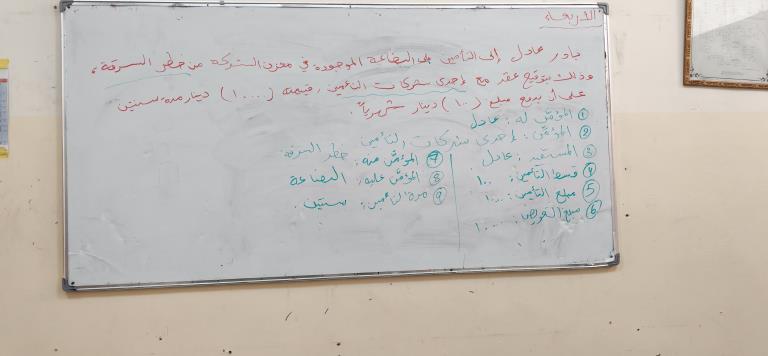 الأربعاء
بادر عادل إلى التأمين على البضاعة الموجودة في مخزن الشركة من خطر السرقة،
وذلك بتوقيع عقد مع إحدى شركات التأمين، قيمته (١٠٠٠٠) دينار مدته سنتين
على أن يدفع مبلغ (١٠٠) دينار شهرياً.
① المؤمن له: عادل
② المؤمن: إحدى شركات التأمين
③ المستفيد: عادل
④ قسط التأمين: ١٠٠
⑤ مبلغ التأمين: ١٠٠٠٠
⑥ مبلغ التعويض: ١٠٠٠٠
⑦ المؤمن منه: خطر السرقة
⑧ المؤمن عليه: البضاعة
⑨ مدة التأمين: سنتين.